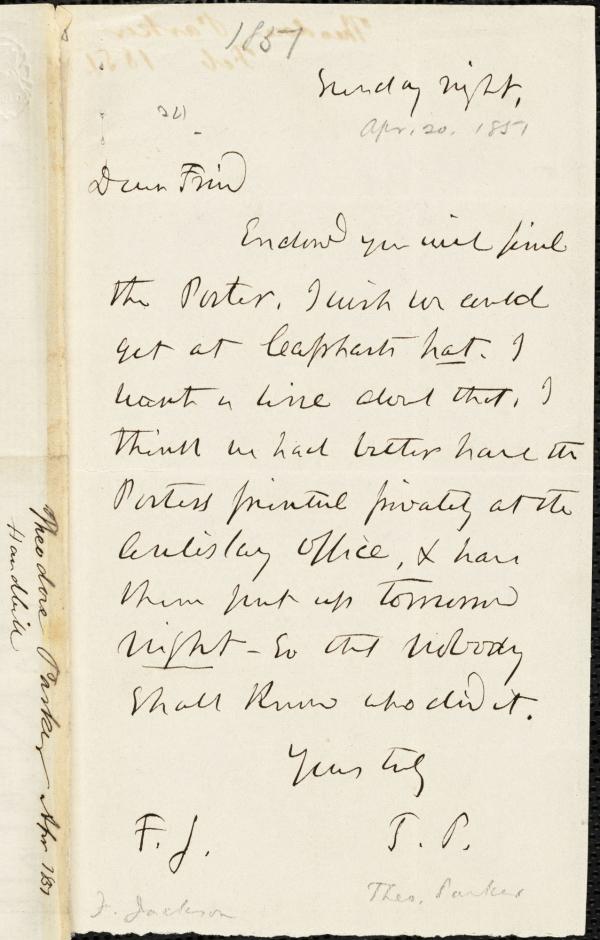 1851
Sunday night,
Apr. 20. 1851
Dear Friend
Enclosed you will find
the Poster. I wish we could
get at Caphart's hat. I
want a line about that. I
think we had better have the
Posters printed privately at the
antislavy office, & have
them put up tomorrow
night – So that nobody
Shall Know who did it.
Yours truly
F. J.
T. P.
F. Jackson
Theo. Parker
Theodore Parker Apr 1851
Handbill